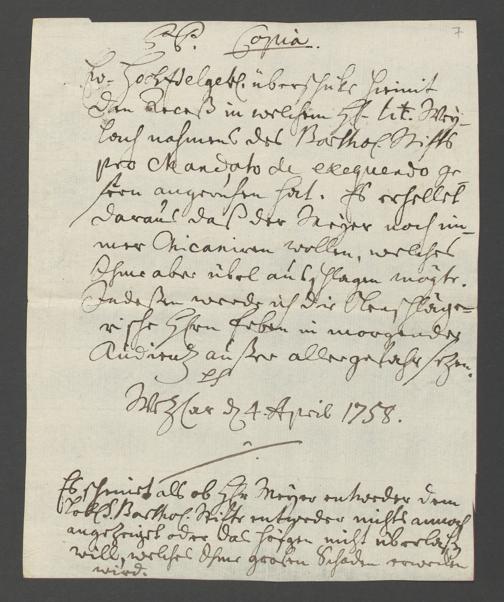 7
Copia.
Ew. HochEdelgeb. überschicke hiemit
den Receß in welchem H. tit. Wey-
lach nahmens des Barthol. Stifts
pro Mandato de exequendo ge-
stern angeruffen hat. Es erhellet
daraus daß der Meyer noch im-
mer Chicaniren wollen, welches
Ihme aber übel ausschlagen mögte.
Indeßen werde ich die Olenschläge-
rische Hhen Erben in morgender
Audientz außer aller gefahr setzen.
Wetzlar d. 4. April 1758.
Es scheinet als ob Hr. Meyer entweder dem
Barthol. Stifte entweder nichts annoch
angezeiget oder das Höfgen nicht überlaßen
will, welches Ihme großen Schaden erwecken
wird.